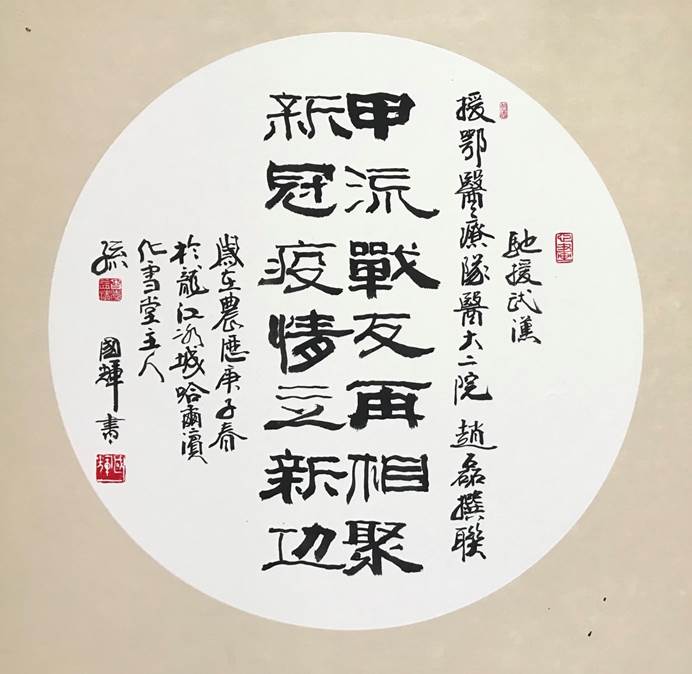 馳援武漢
援鄂醫療隊醫大二院 趙磊撰聯
甲流戰友再相聚
新冠疫情立新功
歲在農歷庚子春
於龍江冰城哈爾濱
化雪堂主人
孫國輝書